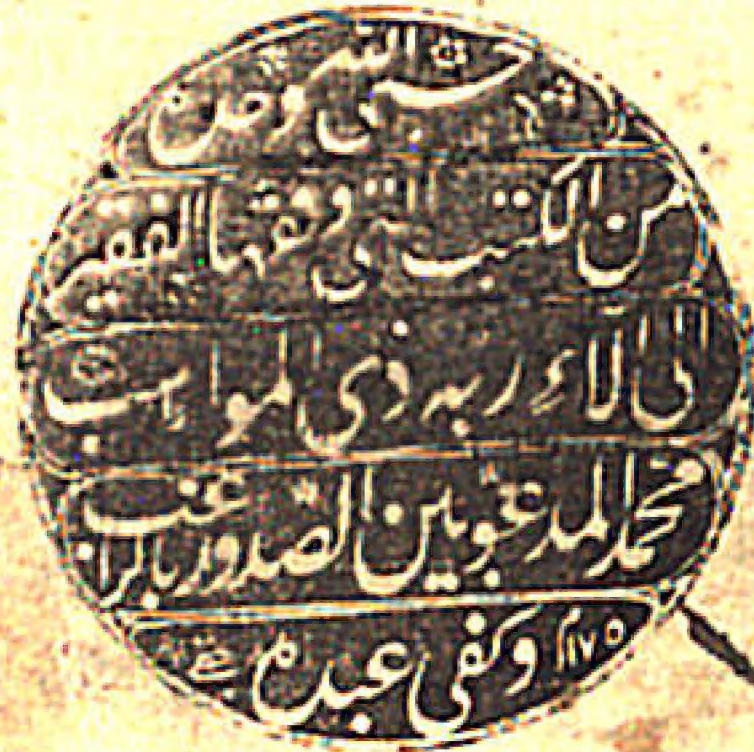 حسبي الله وحده
من الكتب التي وقفها الفقير
الى آلاء ربه ذي المواهب
محمد المدعو بين الصدور بالراغب
وكفى عبده ١١٧٥